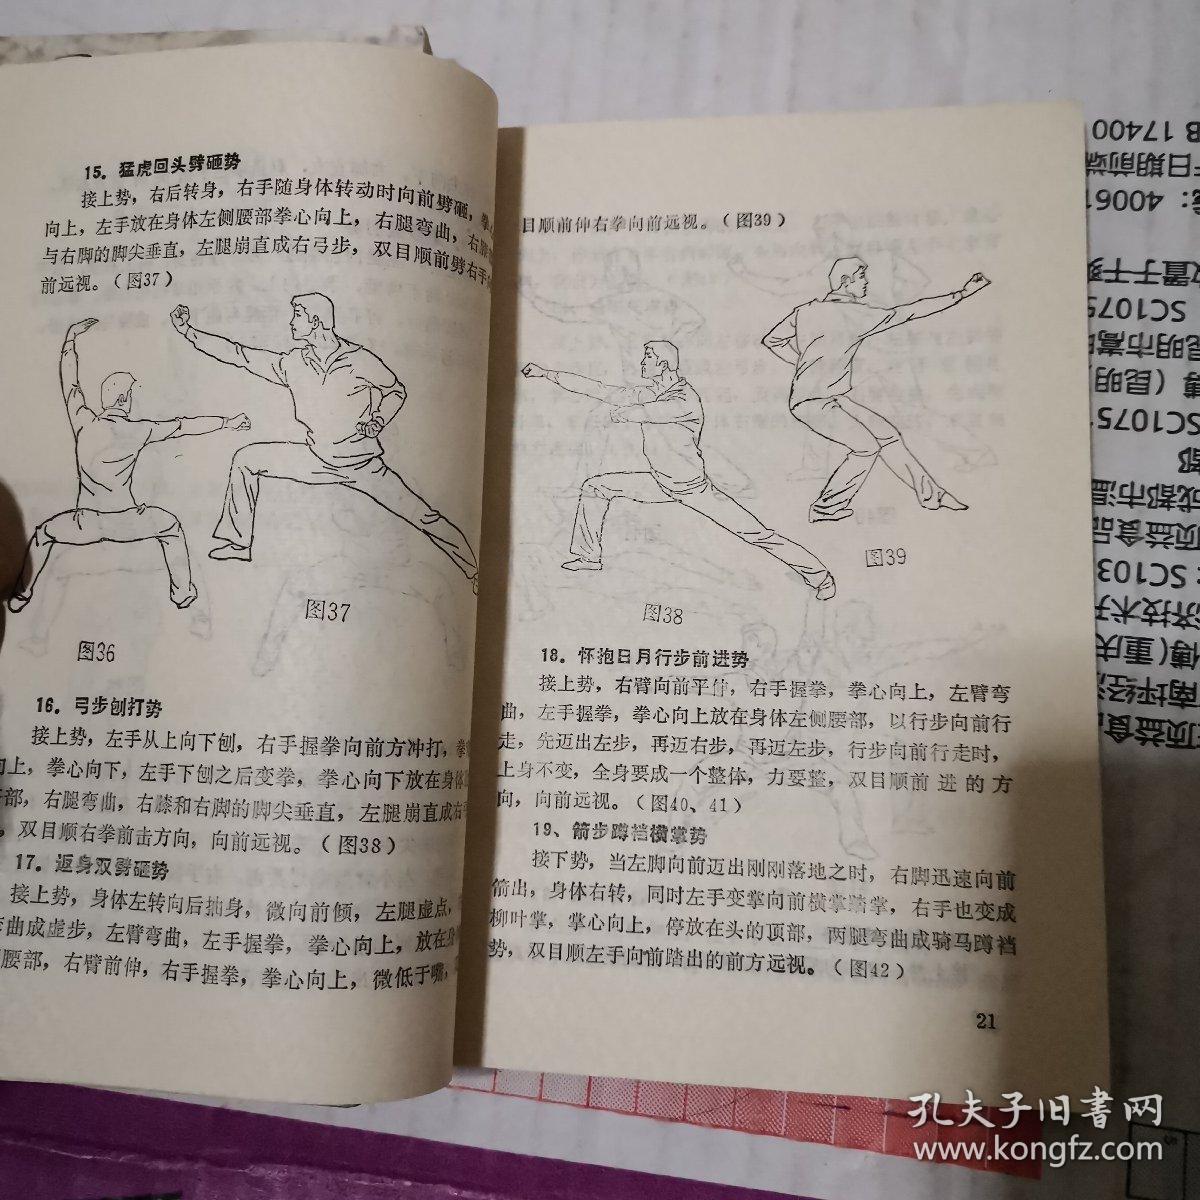 15．猛虎回头劈砸势
接上势，右后转身，右手随身体转动时向前劈砸，拳
向上，左手放在身体左侧腰部拳心向上，右腿弯曲，右膝
与右脚的脚尖垂直，左腿崩直成右弓步，双目顺前劈右手
前远视。（图37）
图36
图37
16．弓步刨打势
接上势，左手从上向下刨，右手握拳向前方冲打，拳
向上，拳心向下，左手下刨之后变拳，拳心向下放在身体
部，右腿弯曲，右膝和右脚的脚尖垂直，左腿崩直成右弓
，双目顺右拳前击方向，向前远视。（图38）
17．返身双劈砸势
接上势，身体左转向后抽身，微向前倾，左腿虚点，
弯曲成虚步，左臂弯曲，左手握拳，拳心向上，放在身
腰部，右臂前伸，右手握拳，拳心向上，微低于嘴，
目顺前伸右拳向前远视。（图39）
图38
图39
18．怀抱日月行步前进势
接上势，右臂向前平伸，右手握拳，拳心向上，左臂弯
曲，左手握拳，拳心向上放在身体左侧腰部，以行步向前行
走，先迈出左步，再迈右步，再迈左步，行步向前行走时，
上身不变，全身要成一个整体，力要整，双目顺前进的方
向，向前远视。（图40、41）
19、箭步蹲裆横掌势
接下势，当左脚向前迈出刚刚落地之时，右脚迅速向前
箭出，身体右转，同时左手变掌向前横掌踏掌，右手也变成
柳叶掌，掌心向上，停放在头的顶部，两腿弯曲成骑马蹲裆
势，双目顺左手向前踏出的前方远视。（图42）
21
B 17400
日期前端
40061
置于干爽
SC1075
昆明市嵩明
（昆明
SC1075
都
成都市温
顶益食品
SC103
济技术开
傅（重庆
南坪经济
顶益食品
孔夫子旧书网
www.kongfz.com